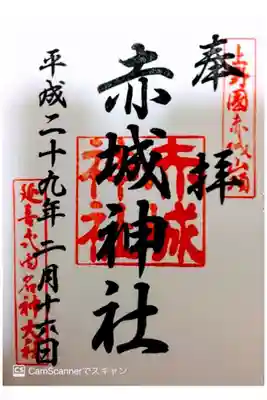 奉拝
上野國赤城山頂
赤城神社
赤城神社
平成二十九年二月十六日
延喜式内名神大社
CS CamScannerでスキャン